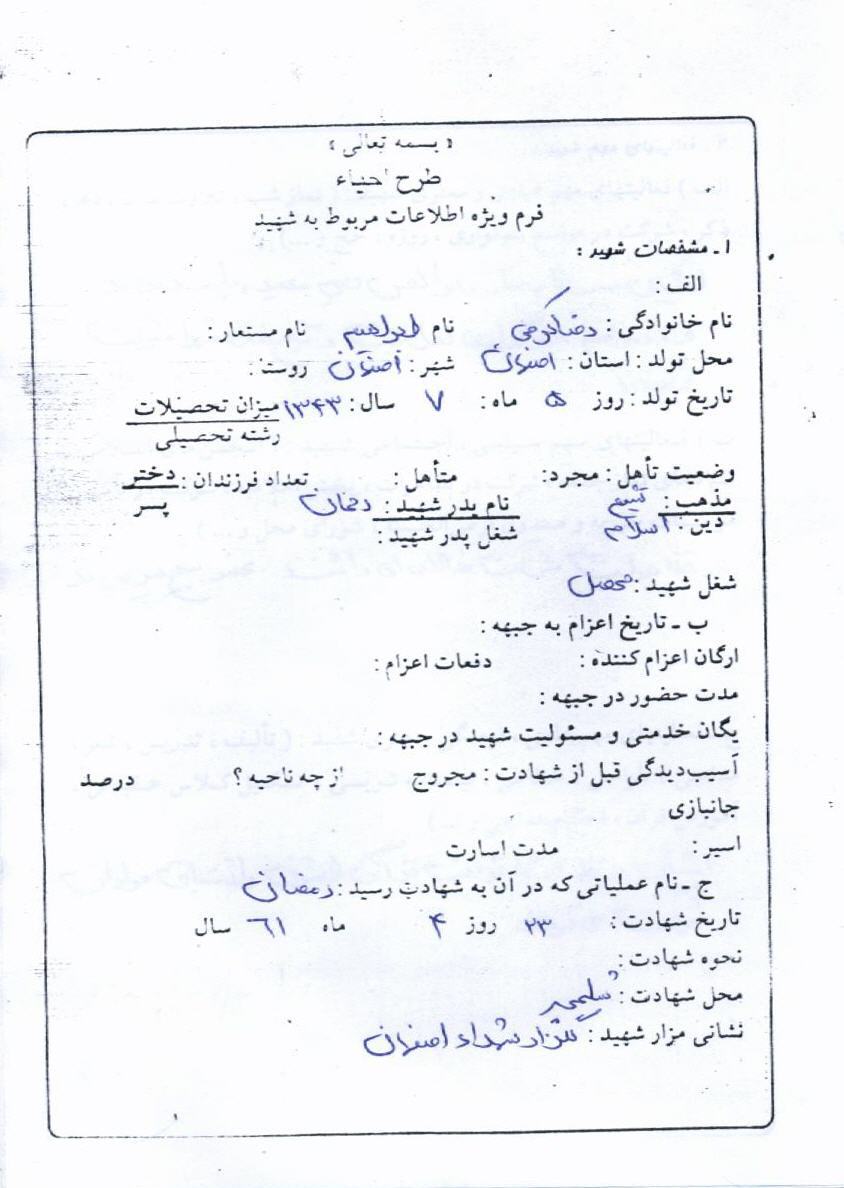 « بسمه تعالی »
طرح احیاء
فرم ویژه اطلاعات مربوط به شهید
۱ ـ مشخصات شهید :
الف :
نام خانوادگی : رضا کوچی نام ابراهیم نام مستعار :
محل تولد : استان : اصفهان شهر : اصفهان روستا :
تاریخ تولد : روز ۵ ماه : ۷ سال : ۱۳۴۳ میزان تحصیلات
رشته تحصیلی
وضعیت تأهل : مجرد : متأهل : تعداد فرزندان : دختر
پسر
مذهب : شیعه نام پدر شهید : رمضان
دین : اسلام شغل پدر شهید :
شغل شهید : محصل
ب ـ تاریخ اعزام به جبهه :
ارگان اعزام کننده : دفعات اعزام :
مدت حضور در جبهه :
یگان خدمتی و مسئولیت شهید در جبهه :
آسیب‌دیدگی قبل از شهادت : مجروح از چه ناحیه ؟ درصد
جانبازی
اسیر : مدت اسارت
ج ـ نام عملیاتی که در آن به شهادت رسید : رمضان
تاریخ شهادت : ۲۳ روز ۴ ماه ۶۱ سال
نحوه شهادت :
محل شهادت : شلمچه
نشانی مزار شهید : گلزار شهداء اصفهان